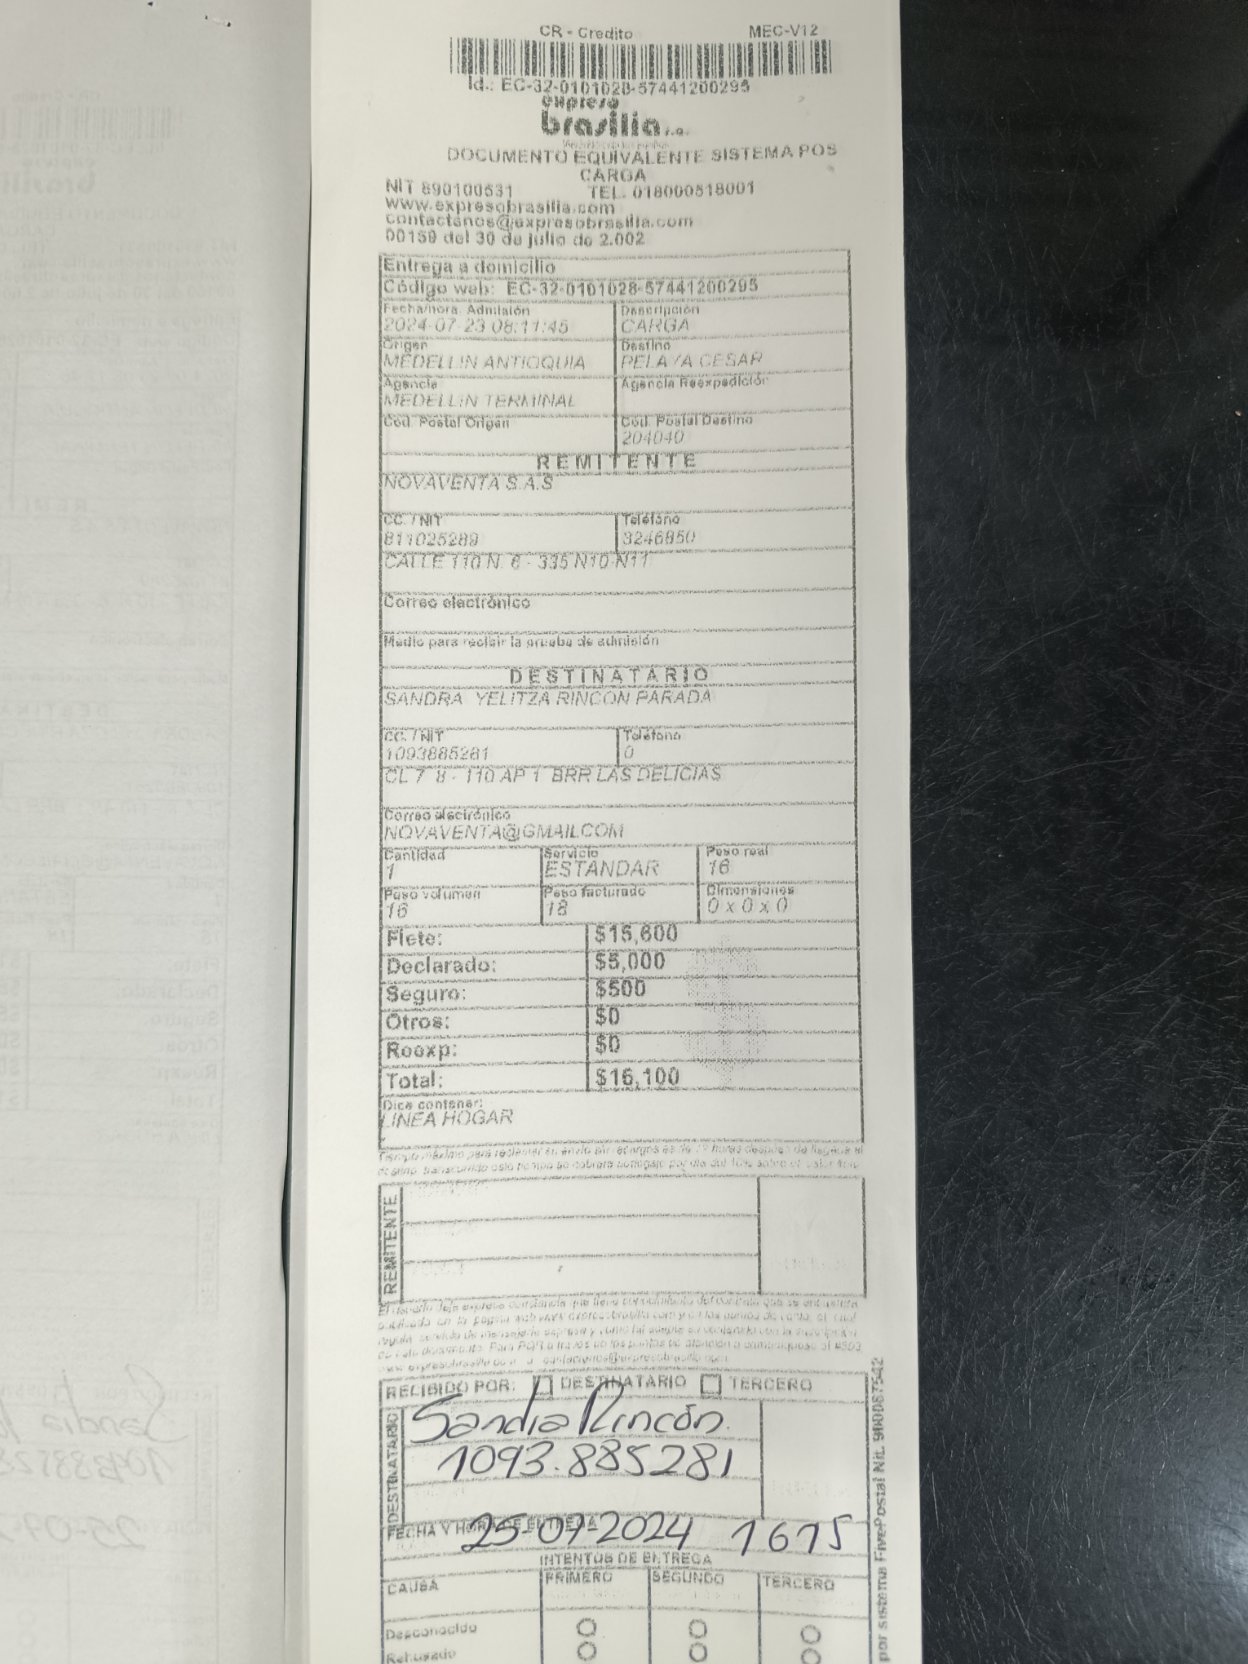 CR - Credito MEC-V12
Id.: EC-32-0101028-57441200295
expreso
brasilia s.a.
DOCUMENTO EQUIVALENTE SISTEMA POS
CARGA
NIT 890100531 TEL. 018000518001
www.expresobrasilia.com
contactenos@expresobrasilia.com
00159 del 30 de julio de 2.002
Entrega a domicilio
Código web: EC-32-0101028-57441200295
Fecha/hora Admisión Descripción
2024-07-23 08:11:45 CARGA
Origen Destino
MEDELLIN ANTIOQUIA PELAYA CESAR
Agencia Agencia Reexpedición
MEDELLIN TERMINAL
Cód. Postal Origen Cód. Postal Destino
204040
REMITENTE
NOVAVENTA S.A.S
CC. / NIT Teléfono
811025289 3246850
CALLE 110 N. 6 - 335 N10-N11
Correo electrónico
Medio para recibir la prueba de admisión
DESTINATARIO
SANDRA YELITZA RINCON PARADA
CC. / NIT Teléfono
1093885281 0
CL 7 8 - 110 AP 1 BRR LAS DELICIAS
Correo electrónico
NOVAVENTA@GMAIL.COM
Cantidad Servicio Peso real
1 ESTANDAR 16
Peso volumen Peso facturado Dimensiones
16 18 0 x 0 x 0
Flete: $15,600
Declarado: $5,000
Seguro: $500
Otros: $0
Reexp: $0
Total: $16,100
Dice contener:
LINEA HOGAR
REMITENTE
RECIBIDO POR: DESTINATARIO TERCERO
DESTINATARIO
Sandra Rincón.
1093.885281
FECHA Y HORA DE ENTREGA
25-07-2024 1615
INTENTOS DE ENTREGA
CAUSA PRIMERO SEGUNDO TERCERO
Desconocido
Rehusado
por sistema FivePostal Nit. 900087542